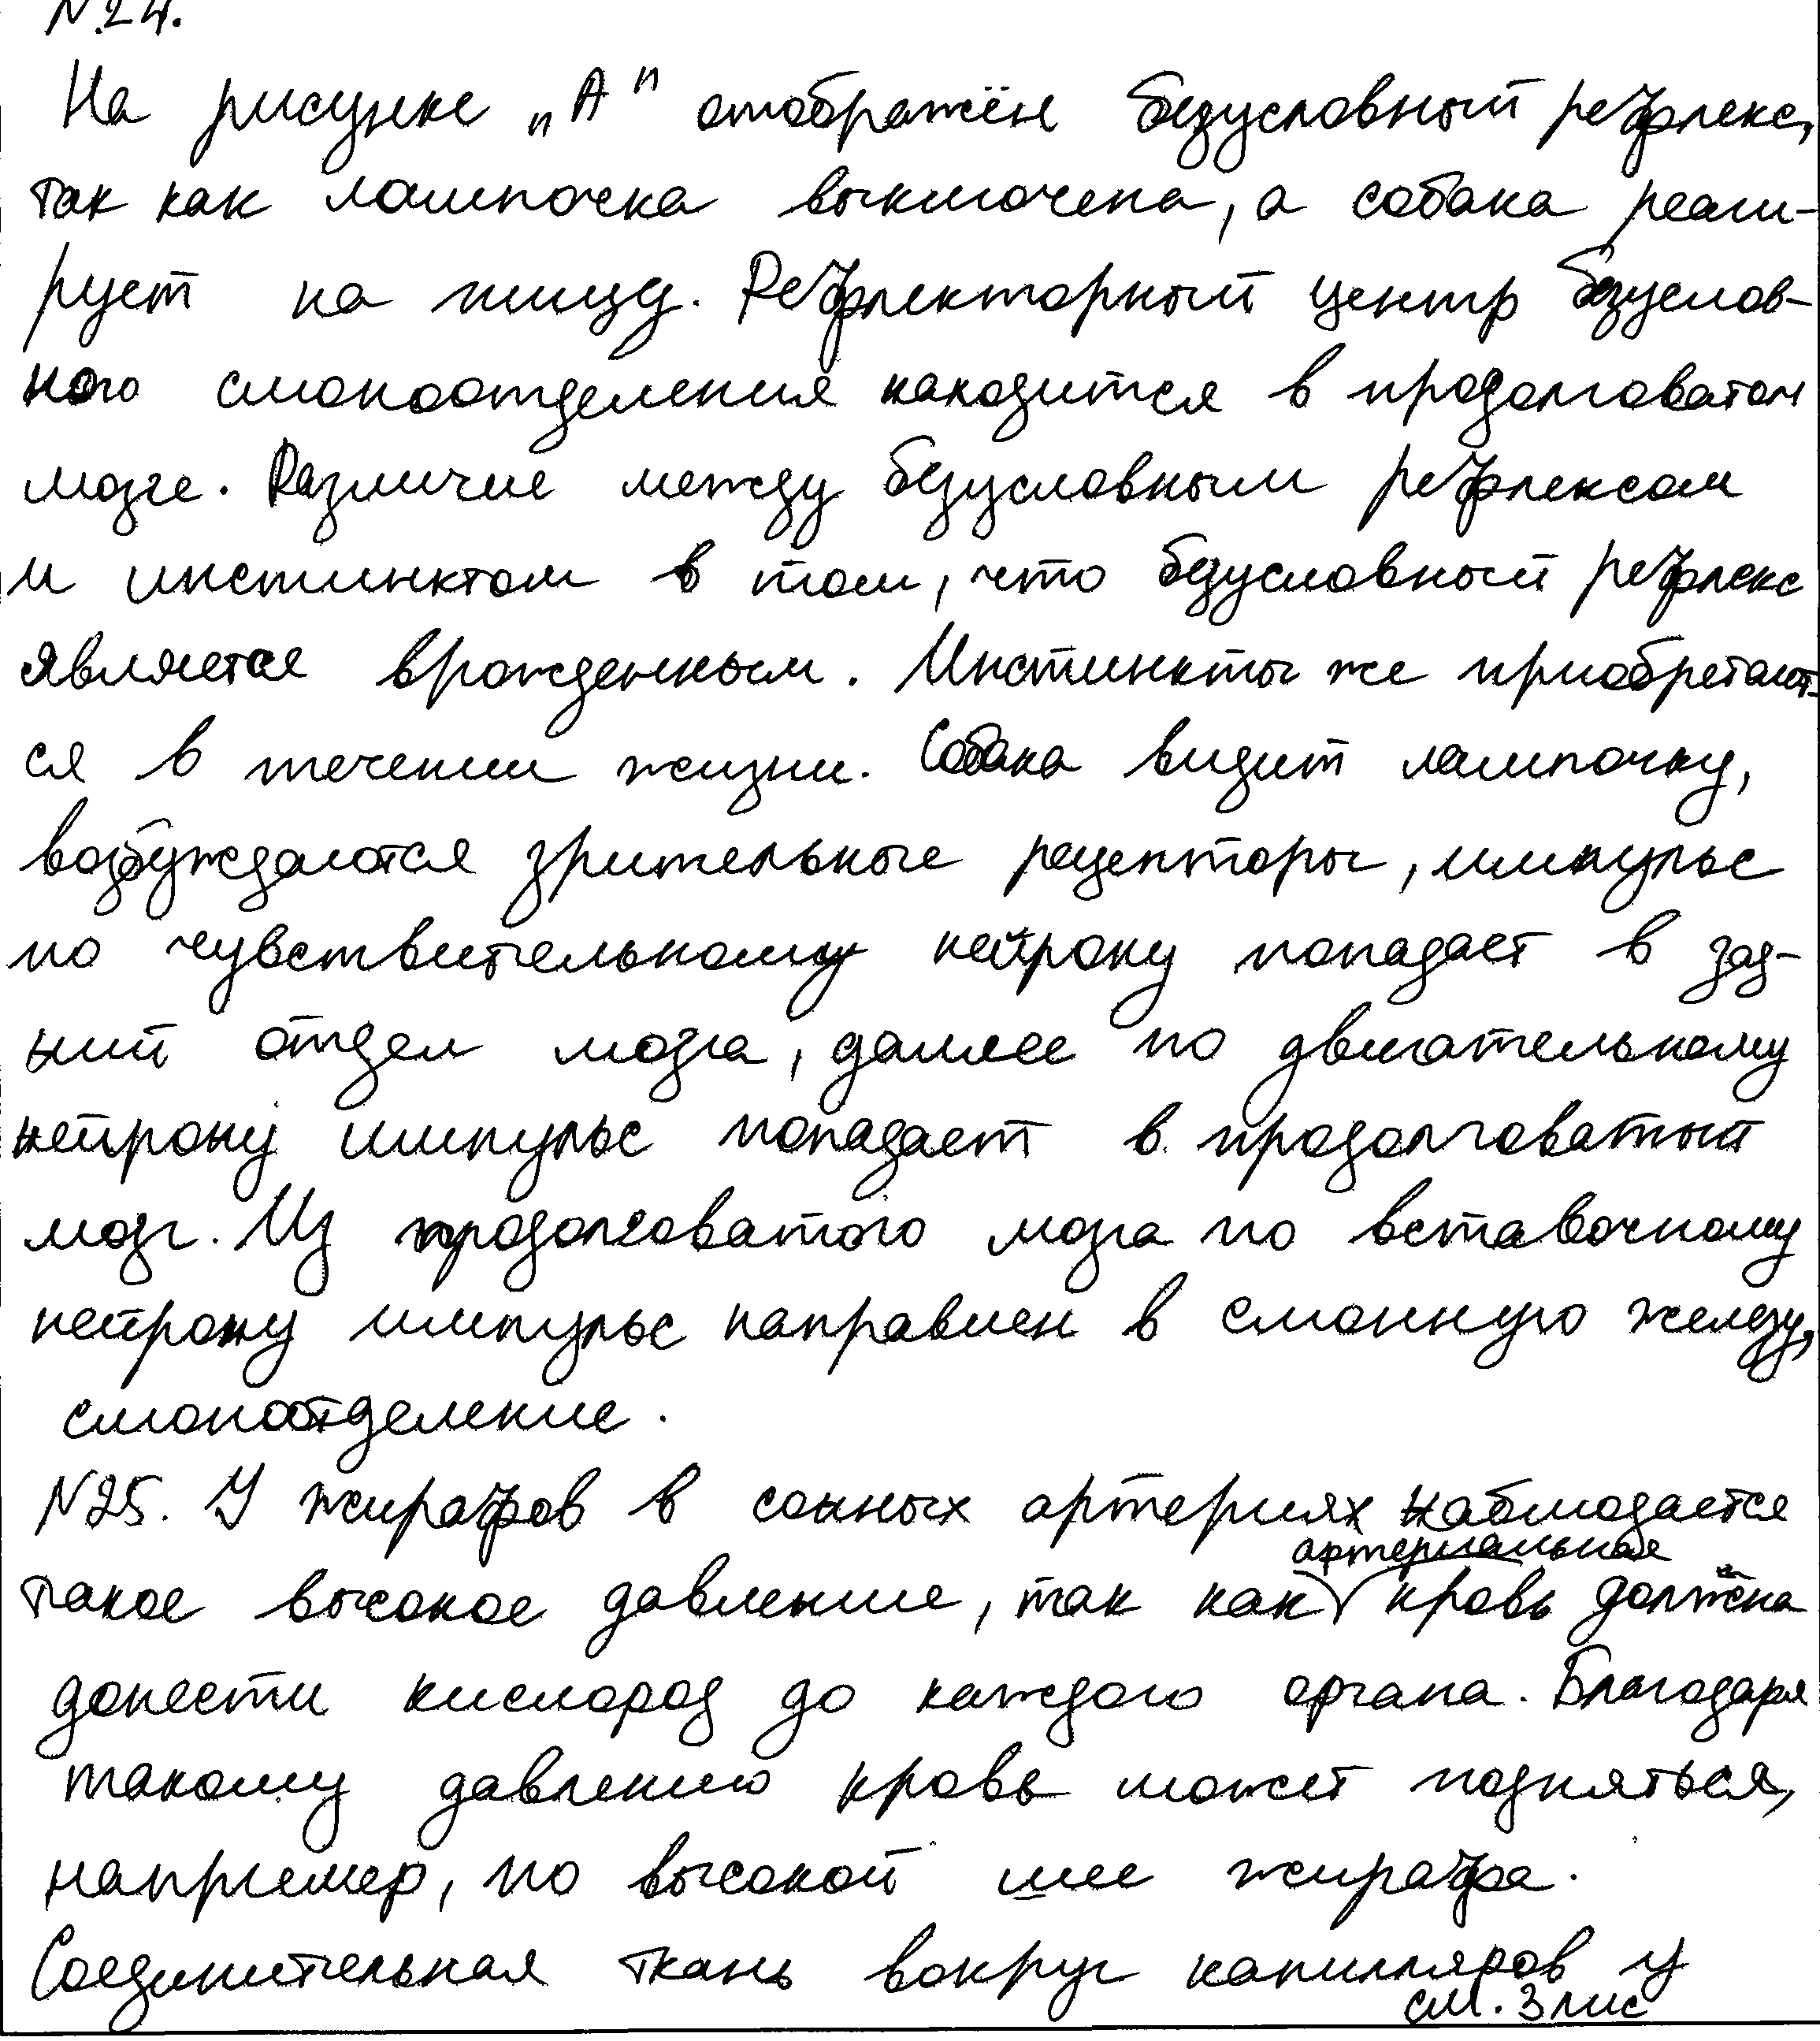 N.24.
На рисунке „А" отображён безусловный рефлекс,
так как лампочка выключена, а собака реаги-
рует на пищу. Рефлекторный центр безуслов-
ного слюноотделения находится в продолговатом
мозге. Различие между безусловным рефлексом
и инстинктом в том, что безусловный рефлекс
является врожденным. Инстинкты же приобретают-
ся в течении жизни. Собака видит лампочку,
возбуждаются зрительные рецепторы, импульс
по чувствительному нейрону попадает в зад-
ний отдел мозга, далее по двигательному
нейрону импульс попадает в продолговатый
мозг. Из продолговатого мозга по вставочному
нейрону импульс направлен в слюнную железу,
слюноотделение.
N25. У жирафов в сонных артериях наблюдается
такое высокое давление, так как артериальная кровь должна
донести кислород до каждого органа. Благодаря
такому давлению кровь может подняться,
например, по высокой шее жирафа.
Соединительная ткань вокруг капилляров у
см. 3 лис